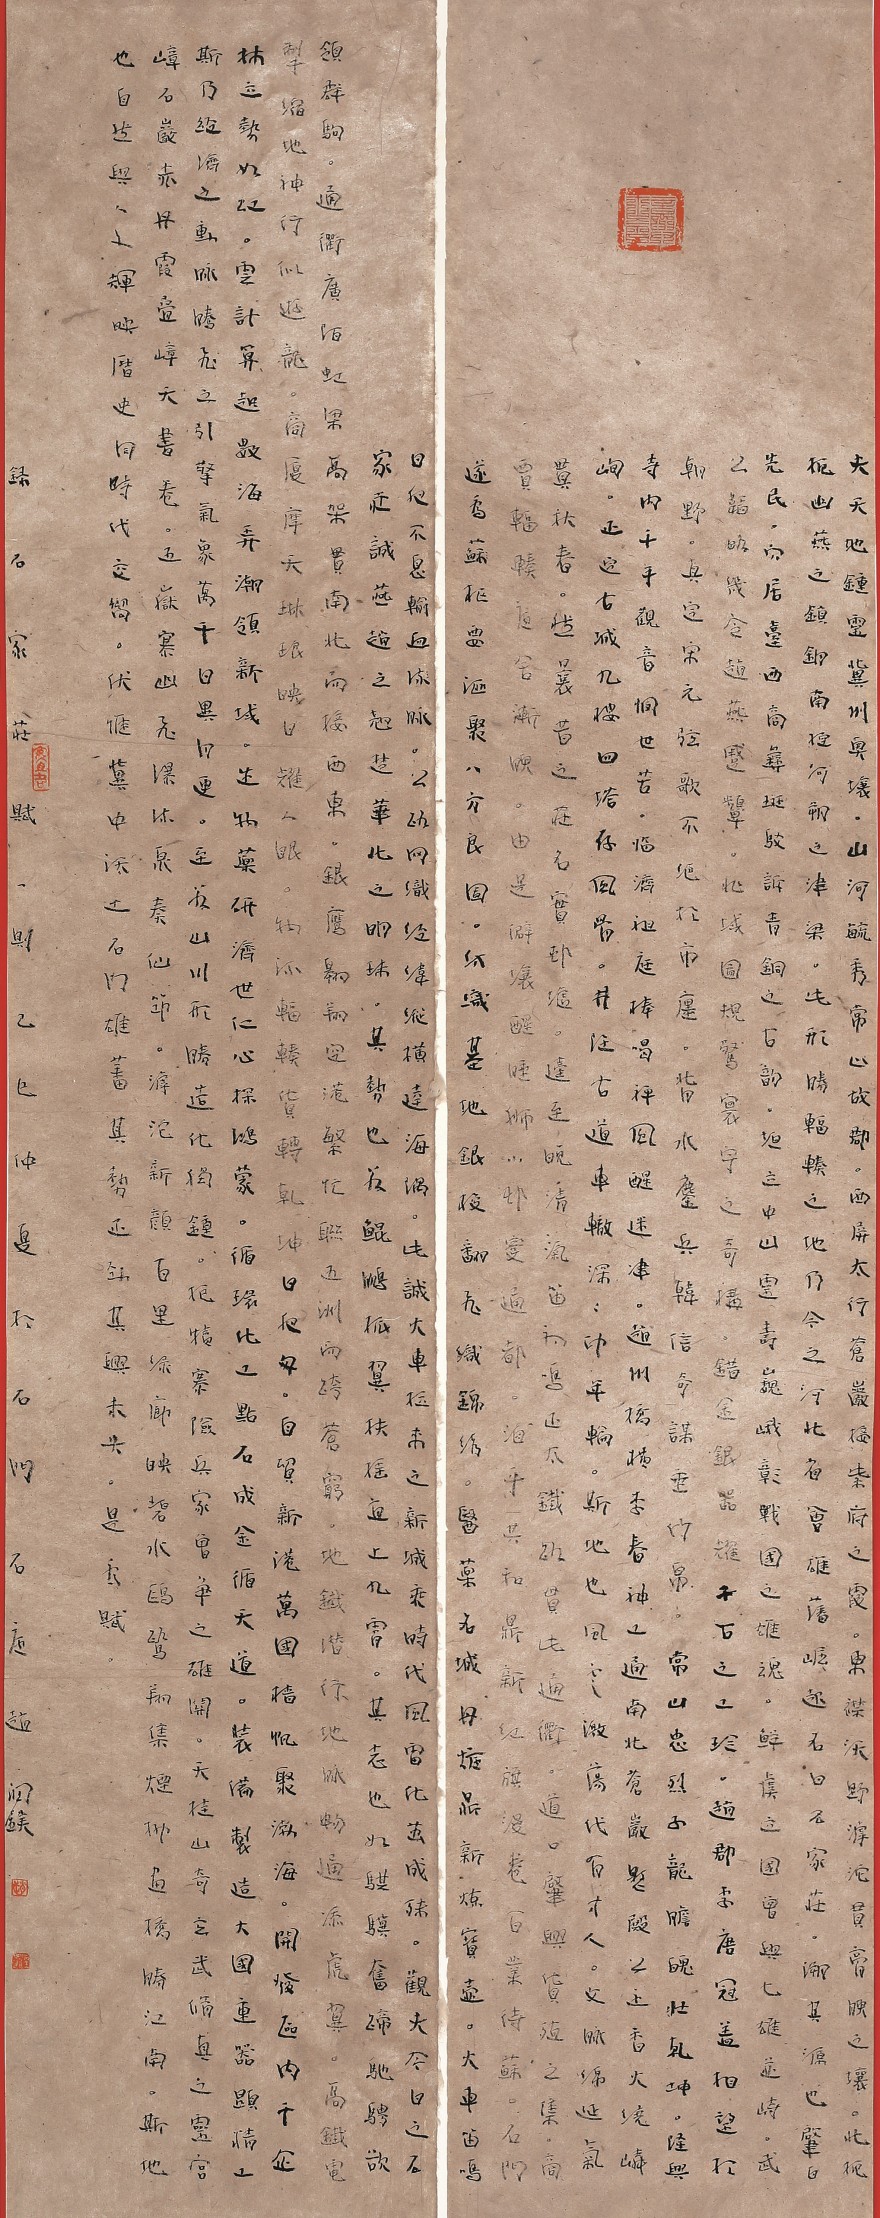 夫天地鍾靈冀州奧壤。山河毓秀常山故郡。西屏太行蒼巖接紫府之霞。東襟沃野滹沱貫膏腴之壤。北扼
扼幽燕之鎮鑰南控河朔之津梁。此形勝輻輳之地乃今之河北省會雄藩崛起石曰石家莊。溯其源也肇自
先民。而居臺西商彝斑駁訴青銅之古韵。垣立中山靈壽巍峨彰戰國之雄魂。鮮虞立國曾與七雄並峙。武
公韜略幾令趙燕蹙顰。兆域圖規驚寰宇之奇構。錯金銀器耀千古之工珍。趙郡李唐冠蓋相望於
朝野。真定宋元弦歌不絕於市廛。背水鏖兵韓信奇謀垂竹帛。常山忠烈子龍膽魄壯乾坤。隆興
寺內千手觀音憫世苦。臨濟祖庭棒喝禪風醒迷津。趙州橋橫李春神工通南北蒼巖懸殿公主香火繞嶙
峋。正定古城九樓四塔存風骨。井陘古道車轍深深印年輪。斯地也風雲激蕩代有才人。文脈綿延氣
貫秋春。然曩昔之莊名實邨墟。達至晚清汽笛初鳴正太鐵路貫此通衢。道口肇興貨殖之集。商
賈輻輳廬舍漸興。由是僻壤醒睡獅小邨變通都。洎乎共和鼎新紅旗漫卷百業待蘇。石門
遂為蘇樞要匯聚八方良圖。紡織基地銀梭翻飛織錦綉。醫藥名城丹爐鼎新煉寶壺。火車笛鳴
日夜不息輸血流脉。公路网織經緯縱橫達海隅。此誠火車拉來之新城乘時代風雷化茧成殊。觀夫今日之石
家莊誠燕趙之翹楚華北之明珠。其勢也若鯤鵬振翼扶搖直上九霄。其志也如騏驥奮蹄馳騁欲
領群駒。通衢廣陌虹梁高架貫南北而接西東。銀鷹翱翔空港繁忙聯五洲而跨蒼穹。地鐵潛行地脉暢通添虎翼。高鐵電
掣縮地神行似遊龍。商廈摩天琳琅映日耀人眼。物流輻輳貨轉乾坤日夜匆。自貿新港萬國檣帆聚渤海。開發區內千企
林立勢如虹。雲計算起數海弄潮領新域。生物藥研濟世仁心探鴻蒙。循環化工點石成金循天道。裝備製造大國重器顯精工
斯乃經濟之動脉騰飛之引擎氣象萬千日異月更。至若山川形勝造化獨鍾。抱犢寨險兵家曾爭之雄關。天桂山奇玄武脩真之靈宮
嶂石巖赤丹霞疊嶂天書卷。五嶽寨幽飛瀑沐泉奏仙節。滹沱新顏百里綠廊映碧水鷗鷺翔集煙柳畫橋勝江南。斯地
也自然與人文輝映曆史同時代交響。伏惟冀中沃土石門雄蓄其勢正錦其興未央。是為賦。
錄石家莊賦一則乙巳仲夏於石門石廬趙潤鏷